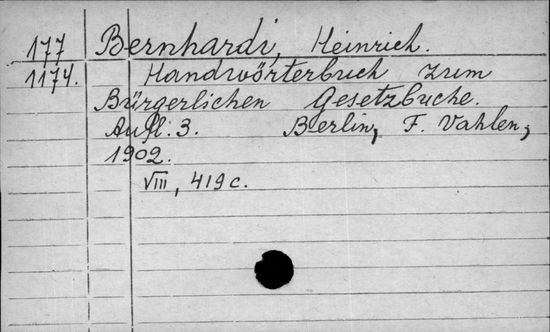 177 Bernhardi, Heinrich.
1174. Handwörterbuch zum
Bürgerlichen Gesetzbuche.
Aufl. 3. Berlin, F. Vahlen,
1902.
VIII, 419 c.